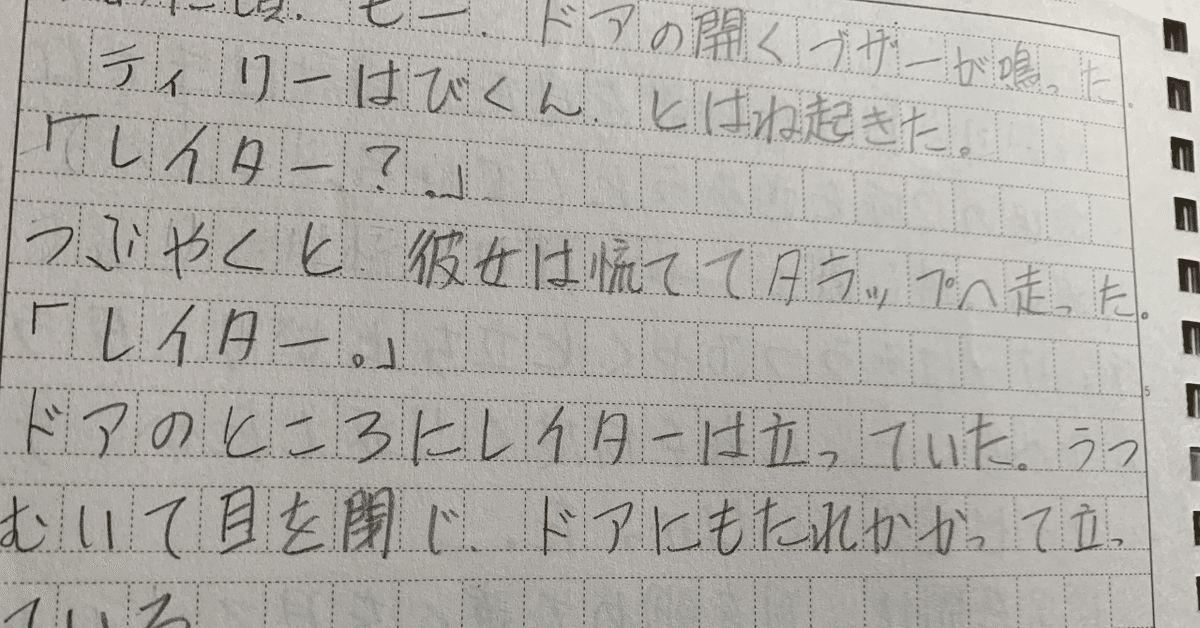 頃、ピー、ドアの開くブザーが鳴った、
ティリーはびくん、とはね起きた。
「レイター?。」
つぶやくと、彼女は慌ててタラップへ走った。
「レイター。」
ドアのところにレイターは立っていた。うつ
むいて目を閉じ、ドアにもたれかかって立っ
ている